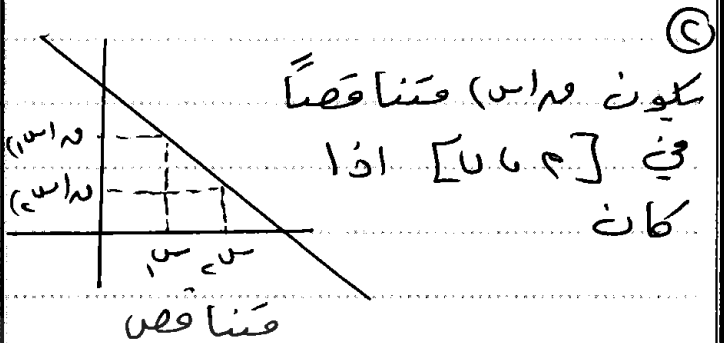 ②
يكون ق(س) متناقصاً
في [م ، ب] اذا
كان
ق(س١)
ق(س٢)
س١ س٢
متناقص